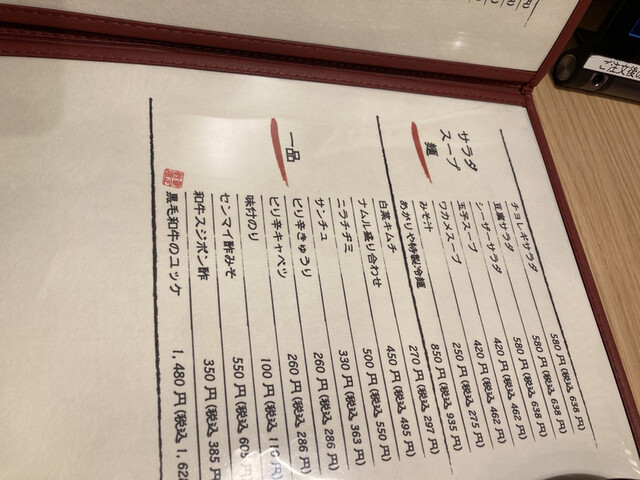 サラダ
スープ
麺
チョレギサラダ 580円(税込 638円)
豆腐サラダ 580円(税込 638円)
シーザーサラダ 580円(税込 638円)
玉子スープ 420円(税込 462円)
ワカメスープ 420円(税込 462円)
みそ汁 250円(税込 275円)
あがりや特製冷麺 850円(税込 935円)
一品
白菜キムチ 270円(税込 297円)
ナムル盛り合わせ 450円(税込 495円)
ニラチヂミ 500円(税込 550円)
サンチュ 330円(税込 363円)
ピリ辛きゅうり 260円(税込 286円)
ピリ辛キャベツ 260円(税込 286円)
味付のり 100円(税込 110円)
センマイ酢みそ 550円(税込 605円)
和牛スジポン酢 350円(税込 385円)
黒毛和牛のユッケ 1,480円(税込 1,628
ご注文後の